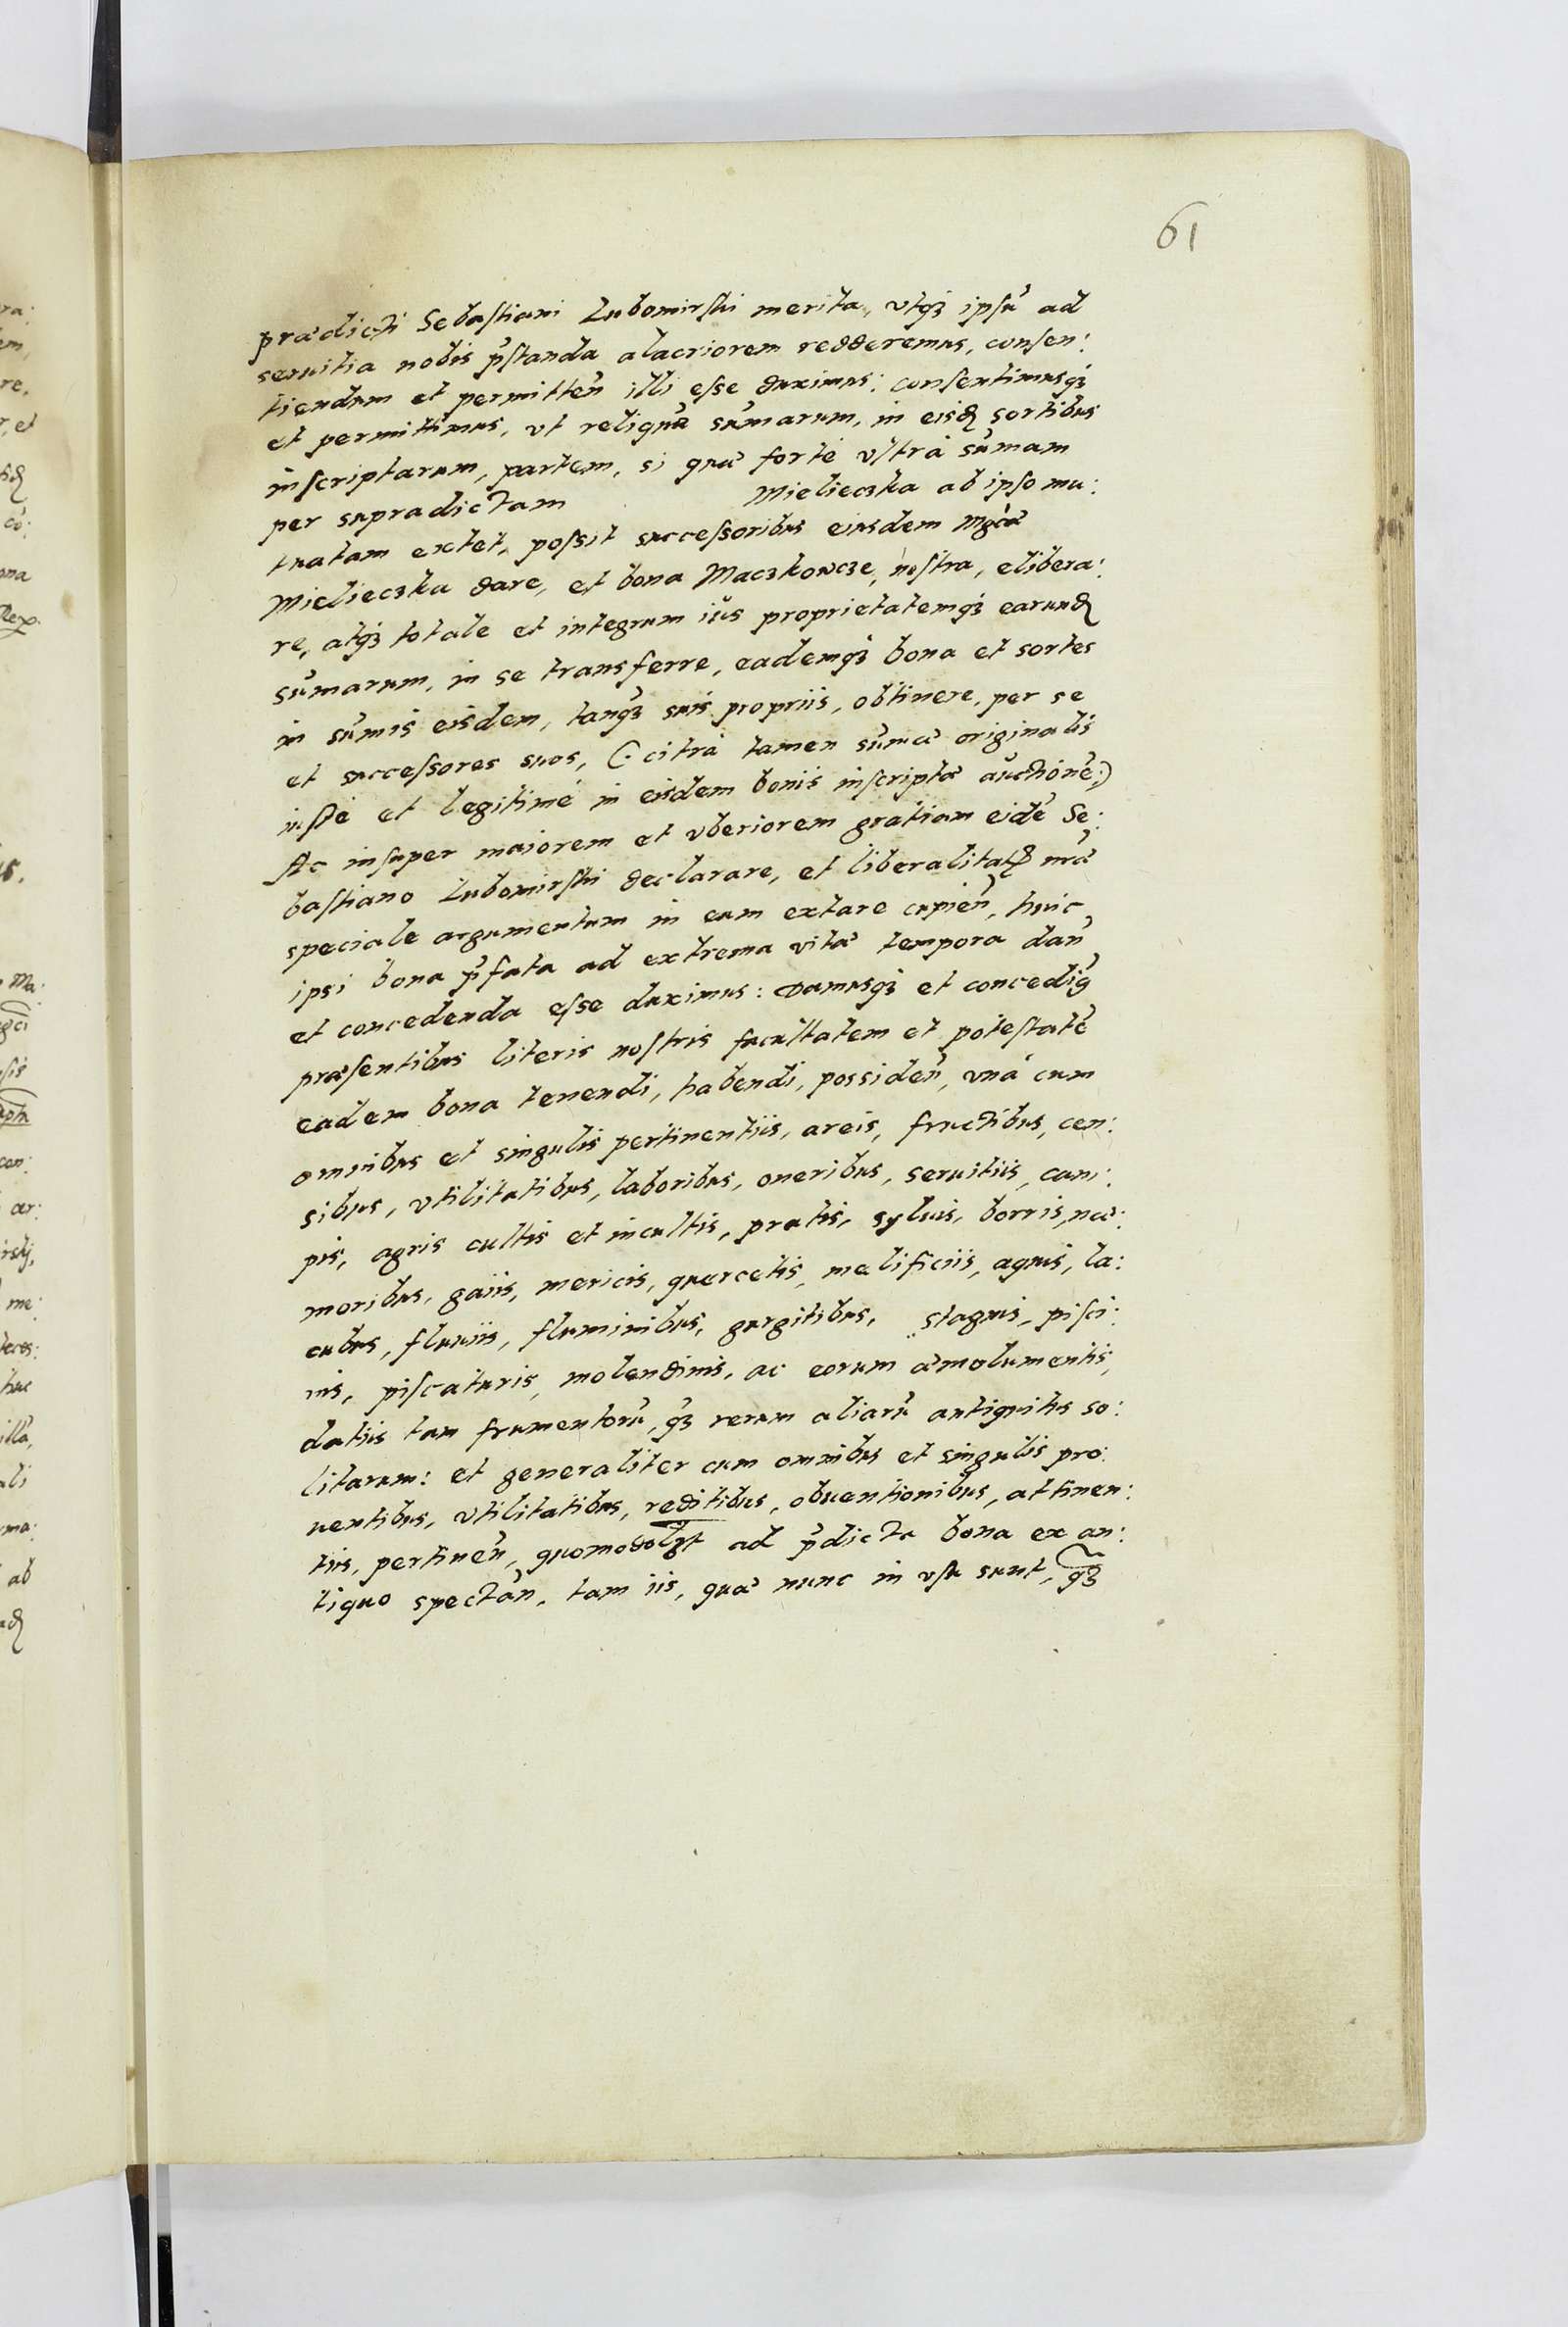 61
prædicti Sebastiani Lubomirski merita, vtqʒ ipsū ad
seruitia nobis p̄standa alacriorem redderemus, consen:
tiendum et permitteñ illi esse duximus: consentimusqʒ
et permittimus, vt reliquæ sūmarum, in eisd sortibus
inscriptarum, partem, si quæ fortè vltrà sūmam
per supradictam Mielieczka ab ipso mu:
tuatam extet, possit successoribus eiusdem Mgcæ
Mielieczka dare, et bona Maczkowcze, nostra, elibera:
re, atqʒ totale et integrum iùs proprietatemqʒ earund
sūmarum, in se transferre, eademqʒ bona et sortes
in sūmis eisdem, tanqʒ suis propriis, obtinere, per se
et successores suos, (: citrà tamen sūmæ originalis
iustè et legitimè in eisdem bonis inscriptæ auctionē:)
Ac insuper maiorem et vberiorem gratiam eidē Se:
bastiano Lubomirski declarare, et liberalitat nræ
speciale argumentum in eum extare cupieñ, huic
ipsi bona p̄fata ad extrema vitæ tempora dañ
et concedenda esse duximus: Damusqʒ et concedig
præsentibus literis nostris facultatem et potestatē
eadem bona tenendi, habendi, possideñ, vnà cum
omnibus et singulis pertinentiis, areis, fructibus, cen:
sibus, vtilitatibus, laboribus, oneribus, seruitiis, cam:
pis, agris cultis et incultis, pratis, syluis, borris, næ:
moribus, gaiis, mericis, quercetis, melificiis, aquis, la:
cubus, fluuiis, fluminibus, gurgitibus, stagnis, pisci:
nis, piscaturis, molendinis, ac eorum æmolumentis,
datiis tam frumentorū, qʒ rerum aliarū antiquitus so:
litarum: et generaliter cum omnibus et singulis pro:
uentibus, vtilitatibus, reditibus, obuentionibus, attinen:
tiis, pertineñ, quomodolꝫt ad p̄dicta bona ex an:
tiquo spectañ, tam iis, quæ nunc in vsu sunt, qʒ